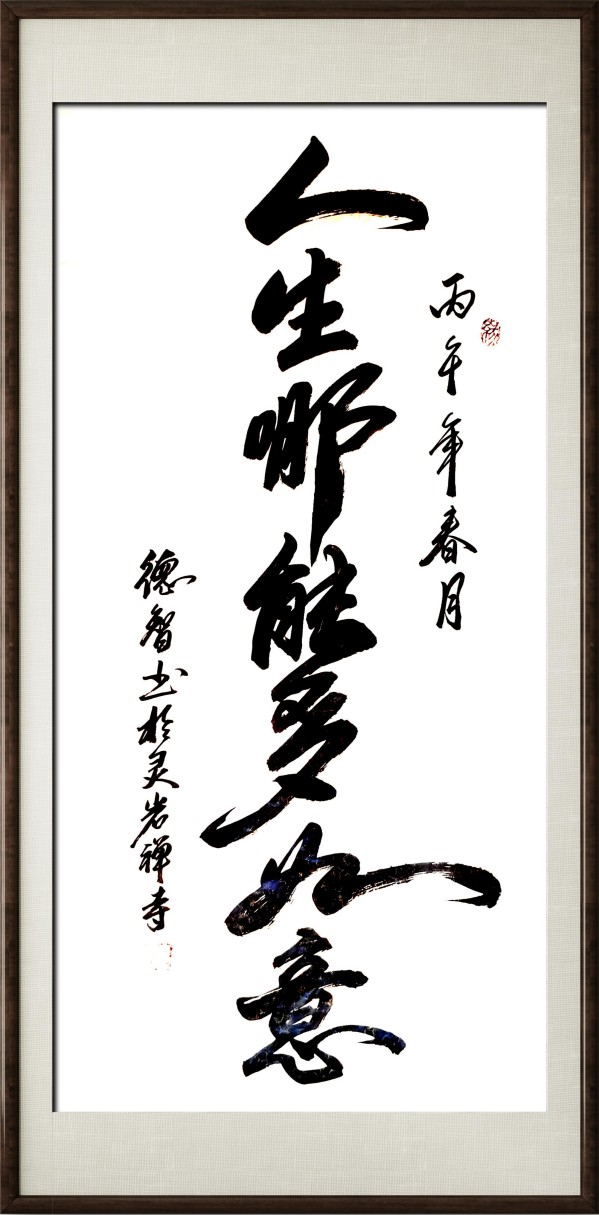 丙午年春月
人生哪能多如意
德智书於灵岩禅寺